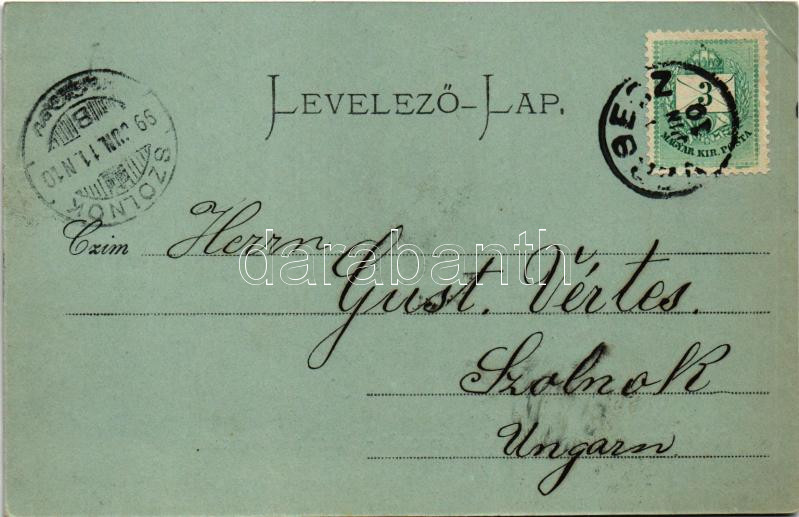 LEVELEZŐ-LAP.
3
MAGYAR KIR. POSTA
99 JUN. 11. N 10
B
SZOLNOK
Czim Herrn
Gust. Vértes.
Szolnok
Ungarn
darabanth